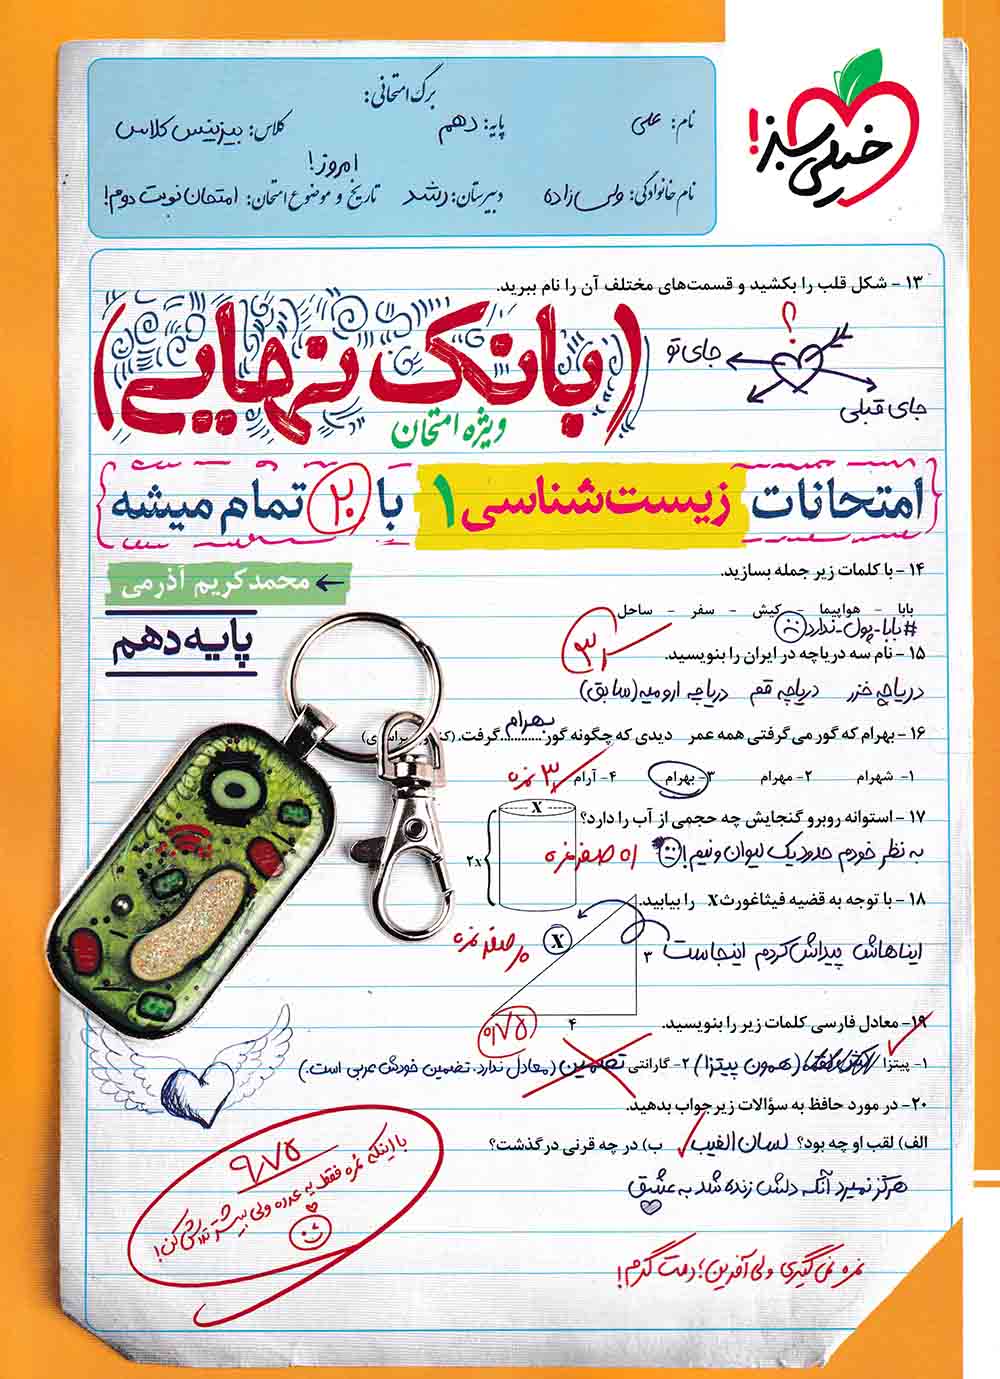 خیلی سبز!
برگ امتحانی:
نام: علی پایه: دهم کلاس: بیزینس کلاس
امروز!
نام خانوادگی: ولی زاده دبیرستان: رشد تاریخ و موضوع امتحان: امتحان نوبت دوم!
۱۳ - شکل قلب را بکشید و قسمت‌های مختلف آن را نام ببرید.
؟
جای تو
جای قبلی
(بانک نهایی)
ویژه امتحان
امتحانات زیست‌شناسی ۱ با ۲۰ تمام میشه
← محمدکریم آذرمی
پایه دهم
۱۴ - با کلمات زیر جمله بسازید.
بابا - هواپیما - کیش - سفر - ساحل
#بابا-پول-ندارد
۱۵ - نام سه دریاچه در ایران را بنویسید.
دریاچه خزر دریاچه قم دریاچه ارومیه (سابق)
۱۶ - بهرام که گور می‌گرفتی همه عمر دیدی که چگونه گور بهرام گرفت.
۱- شهرام ۲- مهرام ۳- بهرام ۴- آرام
۱۷ - استوانه روبرو گنجایش چه حجمی از آب را دارد؟
x
۲x
به نظر خودم حدود یک لیوان و نیم!
۱۸ - با توجه به قضیه فیثاغورث x را بیابید.
X
ایناهاش پیداش کردم اینجاست
۳
۴
صفر نمره
۹/۷۵
۱۹- معادل فارسی کلمات زیر را بنویسید.
۱- پیتزا (همون پیتزا) ۲- گارانتی تضمین (معادل ندارد. تضمین خودش عربی است.)
۲۰- در مورد حافظ به سؤالات زیر جواب بدهید.
الف) لقب او چه بود؟ لسان الغیب ب) در چه قرنی درگذشت؟
هرگز نمیرد آنکه دلش زنده شد به عشق
۹/۷۵
با اینکه نمره فقط یه عدده ولی بیشتر تلاش کن!
نمره نمی‌گیری ولی آفرین؛ دمت گرم!